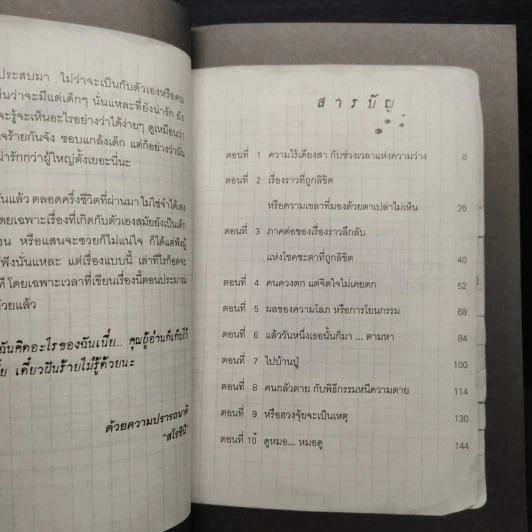 ประสบมา ไม่ว่าจะเป็นกับตัวเองหรือคน
นว่าจะมีแต่เด็กๆ นั่นแหละที่ยังน่ารัก ยัง
จะรู้จะเห็นอะไรอย่างว่าได้ง่ายๆ ดูเหมือนว่า
จร้ายกันจัง ชอบแกล้งเด็ก แต่ก็อย่างว่านั่น
น่ารักกว่าผู้ใหญ่ตั้งเยอะนี่นะ
นแล้ว ตลอดครึ่งชีวิตที่ผ่านมา ไม่ใช่จำได้เอง
โดยเฉพาะเรื่องที่เกิดกับตัวเองสมัยยังเป็นเด็ก
หรือแสนจะซวยก็ไม่แน่ใจ ก็ได้แต่ฟังผู้
ฟังนั่นแหละ แต่เรื่องแบบนี้ เล่าทีไรก็อดจะ
ที โดยเฉพาะเวลาที่เขียนเรื่องนี้ตอนประมาณ
ด้วยแล้ว
ฉันคิดอะไรของฉันเนี่ย... คุณผู้อ่านก็เก็บไว้
เดี๋ยวฝันร้ายไม่รู้ด้วยนะ
ด้วยความปรารถนาดี
"สโรชินี"
สารบัญ
ตอนที่ 1 ความไร้เดียงสา กับช่วงเวลาแห่งความว่าง 8
ตอนที่ 2 เรื่องราวที่ถูกลิขิต
หรือความเขลาที่มองด้วยตาเปล่าไม่เห็น 26
ตอนที่ 3 ภาคต่อของเรื่องราวลึกลับ
แห่งโชคชะตาที่ถูกลิขิต 40
ตอนที่ 4 คนดวงตก แต่จิตใจไม่เคยตก 52
ตอนที่ 5 ผลของความโลภ หรือการโยนกรรม 68
ตอนที่ 6 แล้ววันหนึ่งเธอนั้นก็มา ... ตามหา 84
ตอนที่ 7 ไปบ้านปู่ 100
ตอนที่ 8 คนกลัวตาย กับพิธีกรรมหนีความตาย 114
ตอนที่ 9 หรือฮวงจุ้ยจะเป็นเหตุ 130
ตอนที่ 10 ดูหมอ... หมอดู 144